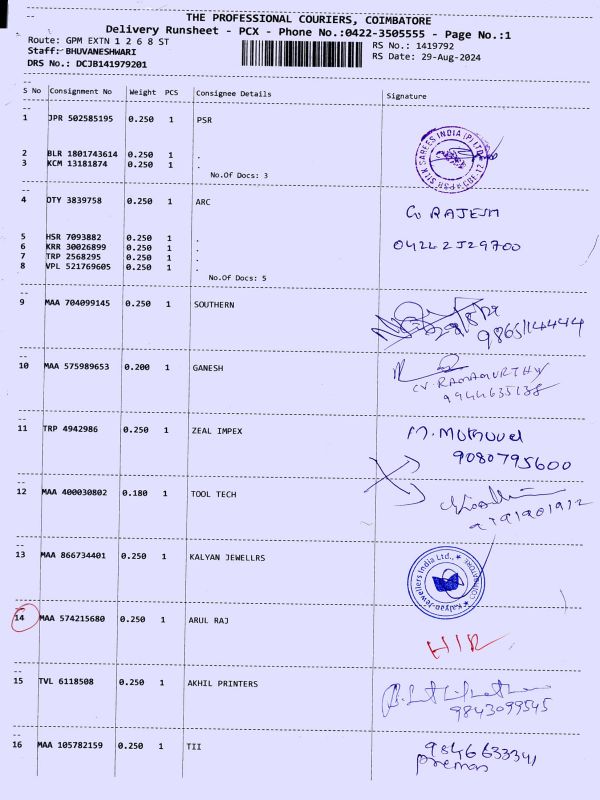 THE PROFESSIONAL COURIERS, COIMBATORE
Delivery Runsheet - PCX - Phone No.:0422-3505555 - Page No.:1
Route: GPM EXTN 1 2 6 8 ST
RS No.: 1419792
Staff: BHUVANESHWARI
RS Date: 29-Aug-2024
DRS No.: DCJB141979201
S No Consignment No Weight PCS Consignee Details Signature
1 JPR 502585195 0.250 1 PSR
2 BLR 1801743614 0.250 1 .
3 KCM 13181874 0.250 1 .
No.Of Docs: 3
4 DTY 3839758 0.250 1 ARC
RAJESH
5 HSR 7093882 0.250 1 .
6 KRR 30026899 0.250 1 .
04242529700
7 TRP 2568295 0.250 1 .
8 VPL 521769605 0.250 1 .
No.Of Docs: 5
9 MAA 704099145 0.250 1 SOUTHERN
9865114444
10 MAA 575989653 0.200 1 GANESH
CV. RAMAMURTHY
9944635138
11 TRP 4942986 0.250 1 ZEAL IMPEX
M. Muthuvel
9080795600
12 MAA 400030802 0.180 1 TOOL TECH
13 MAA 866734401 0.250 1 KALYAN JEWELLRS
Kalyan Jewellers India Ltd.,
14 MAA 574215680 0.250 1 ARUL RAJ
HIR
15 TVL 6118508 0.250 1 AKHIL PRINTERS
9843099545
16 MAA 105782159 0.250 1 TII
9846633341